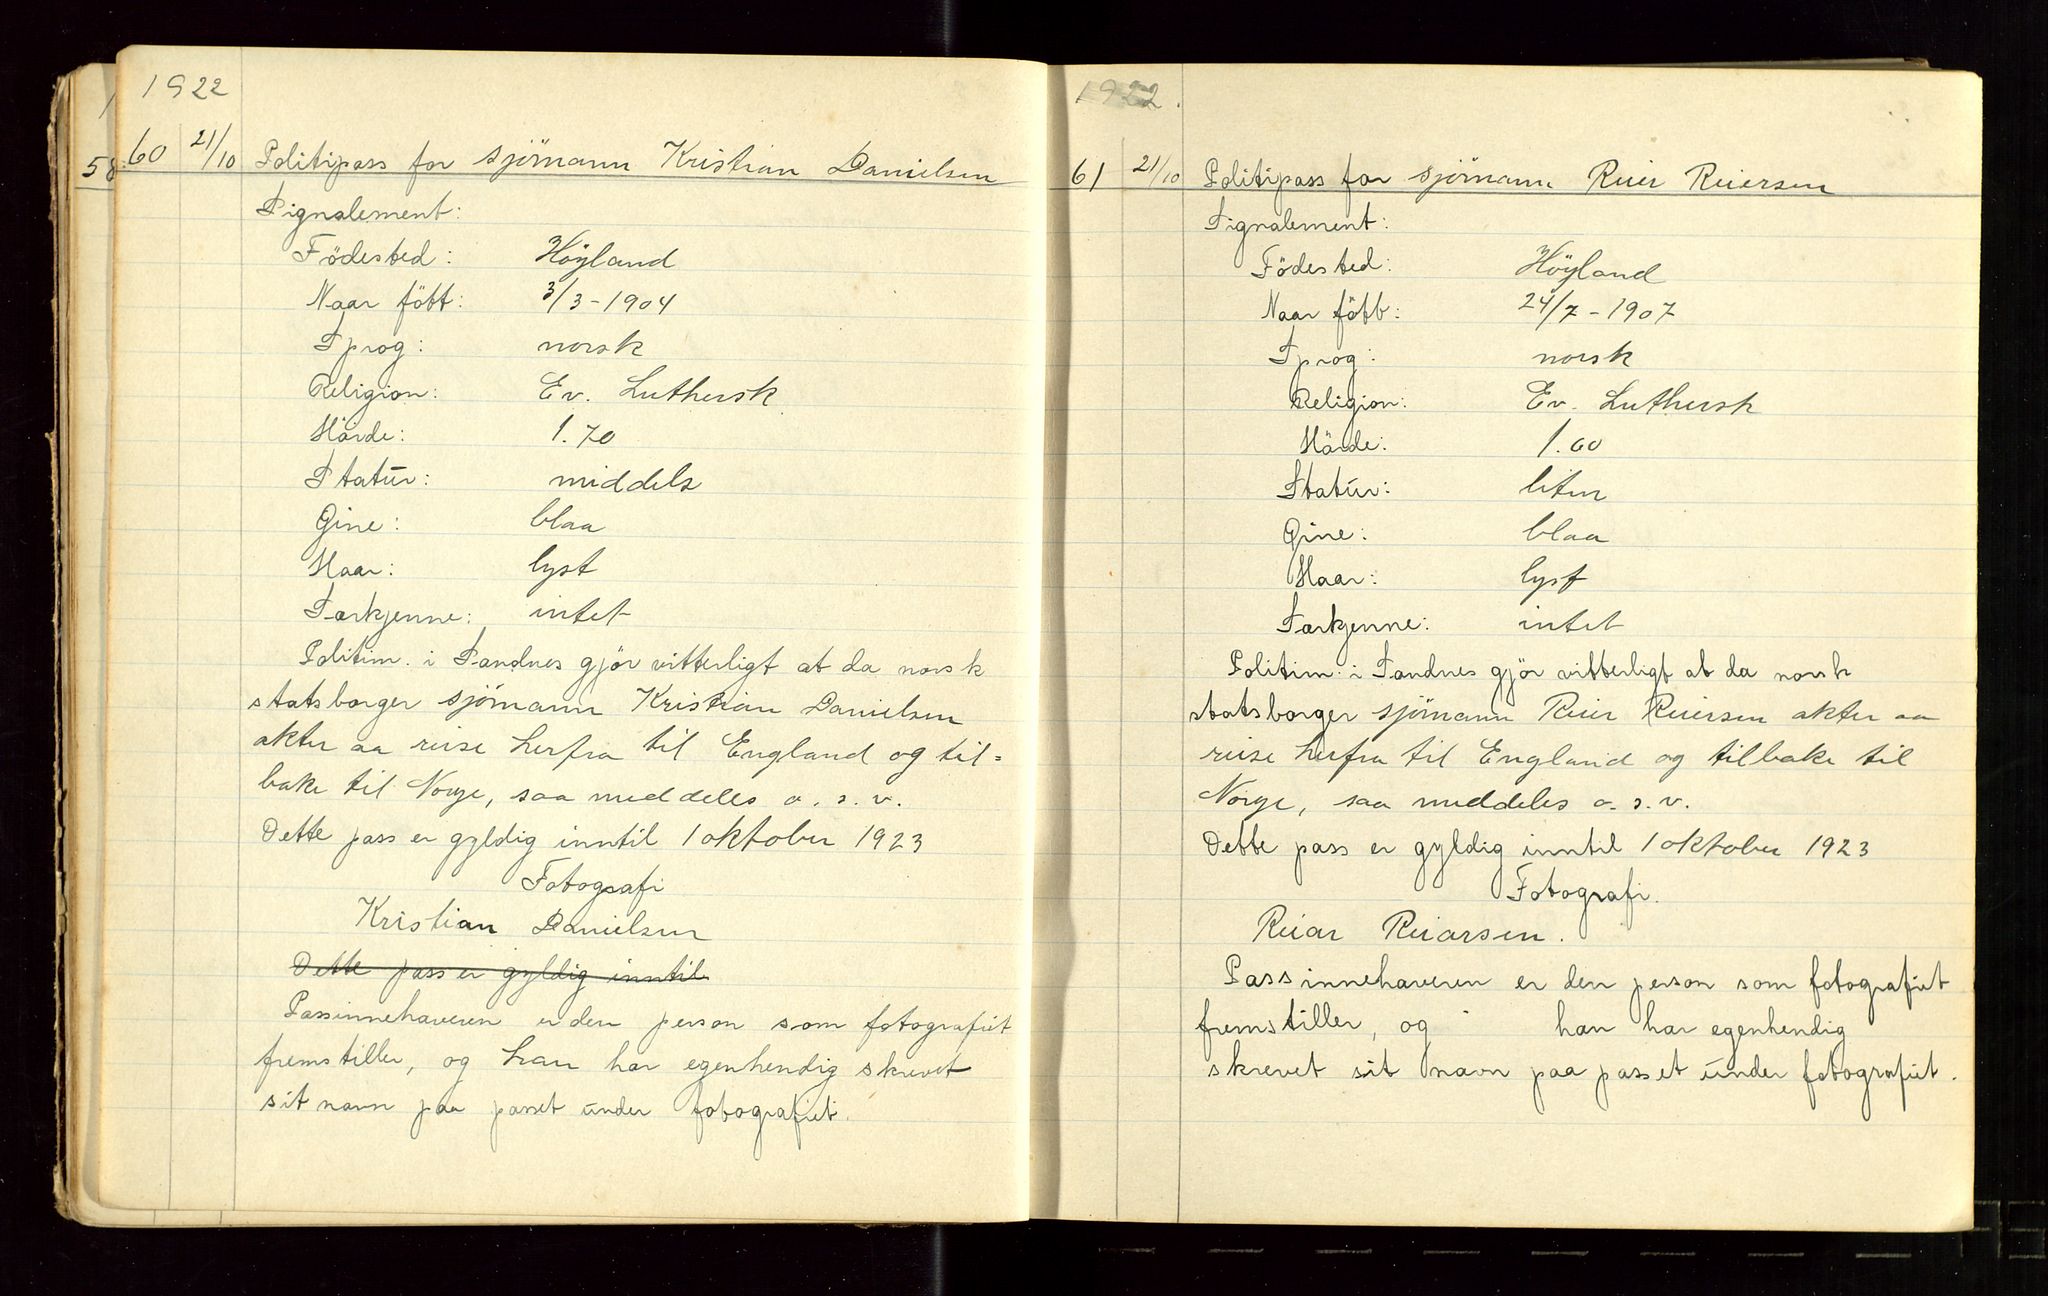 1922
58
60 21/10 Politipass for sjömann Kristian Danielsen
Signalement:
Födested: Höyland
Naar födt: 3/3-1904
Sprog: norsk
Religion: Ev. Luthersk
Höide: 1.70
Statur: middels
Öine: blaa
Haar: lyst
Særkjenne: intet
Politim. i Sandnes gjör vitterligt at da norsk
statsborger sjömann Kristian Danielsen
akter aa reise herfra til England og til=
bake til Norge, saa meddeles o. s. v.
Dette pass er gyldig inntil 1 oktober 1923
Fotografi
Kristian Danielsen
Dette pass er gyldig inntil
Passinnehaveren er den person som fotografiet
fremstiller, og han har egenhendig skrevet
sit navn paa passet under fotografiet.
1922.
61 21/10 Politipass for sjömann Reier Reiersen
Signalement:
Födested: Höyland
Naar födt: 24/7-1907
Sprog: norsk
Religion: Ev. Luthersk
Höide: 1.60
Statur: liten
Öine: blaa
Haar: lyst
Særkjenne: intet
Politim. i Sandnes gjör vitterligt at da norsk
statsborger sjömann Reier Reiersen akter aa
reise herfra til England og tilbake til
Norge, saa meddeles o. s. v.
Dette pass er gyldig inntil 1 oktober 1923
Fotografi.
Reiar Reiarsen.
Passinnehaveren er den person som fotografiet
fremstiller, og han har egenhendig
skrevet sit navn paa passet under fotografiet.